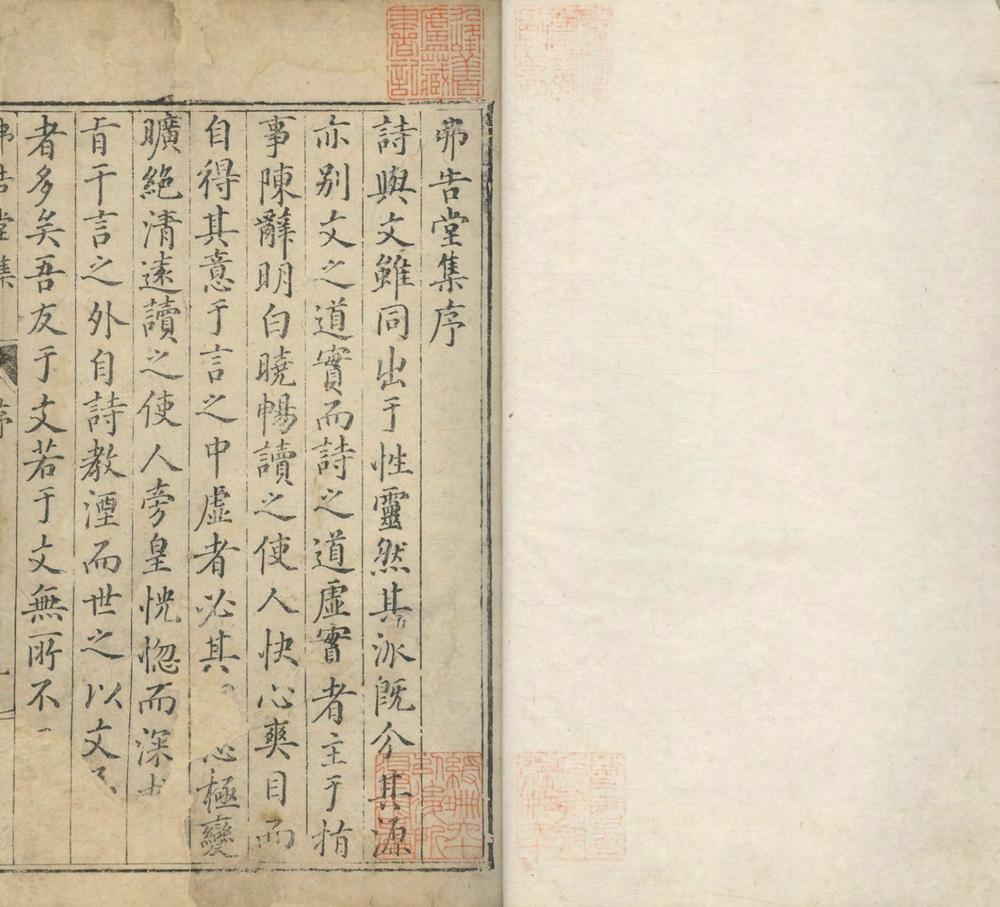 弗告堂集序
詩與文雖同出于性靈然其派既分其源
亦別文之道實而詩之道虛實者主于指
事陳辭明白曉暢讀之使人快心爽目而
自得其意于言之中虛者必其心極變
曠絶清遠讀之使人旁皇恍惚而深
旨于言之外自詩教湮而世之以文
者多矣吾友于文若于文無所不
弗告堂集
序